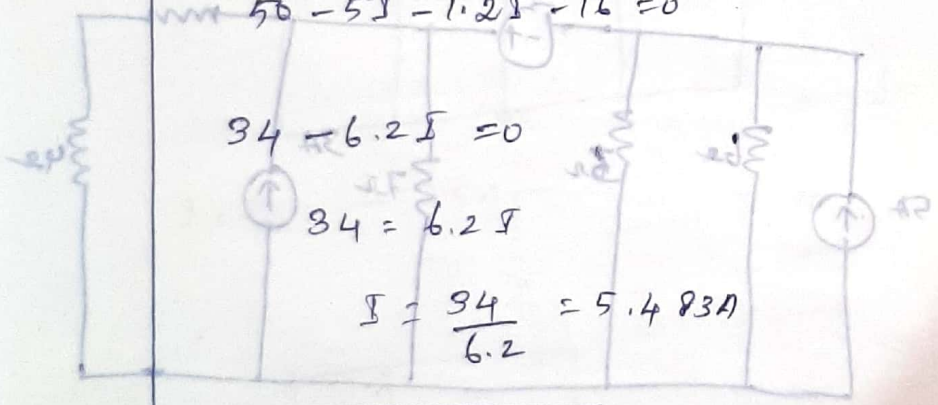 50 - 5I - 1.2I - 16 = 0
34 - 6.2I = 0
34 = 6.2 I
I = 34/6.2 = 5.483A